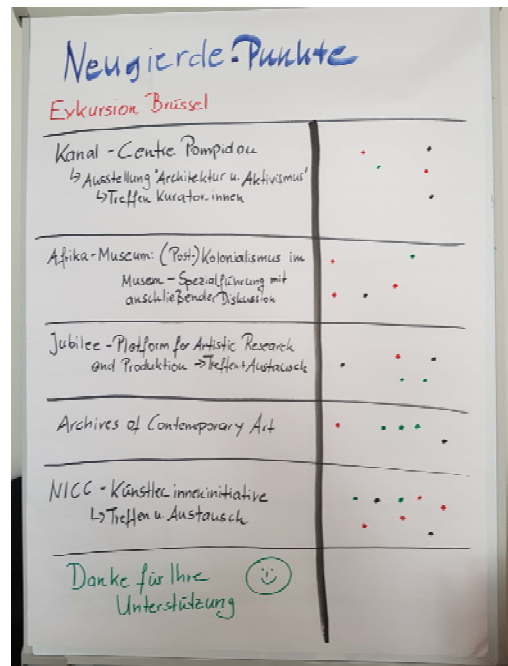 Neugierde-Punkte
Exkursion Brüssel
Kanal - Centre Pompidou
↳ Ausstellung 'Architektur u. Aktivismus'
↳ Treffen Kurator.innen
Afrika-Museum: (Post-)Kolonialismus im
Museum - Spezialführung mit
anschließender Diskussion
Jubilee - Platform for Artistic Research
and Produktion → Treffen + Austausch
Archives of Contemporary Art
NICC - Künstler.inneninitiative
↳ Treffen u. Austausch
Danke für Ihre
Unterstützung